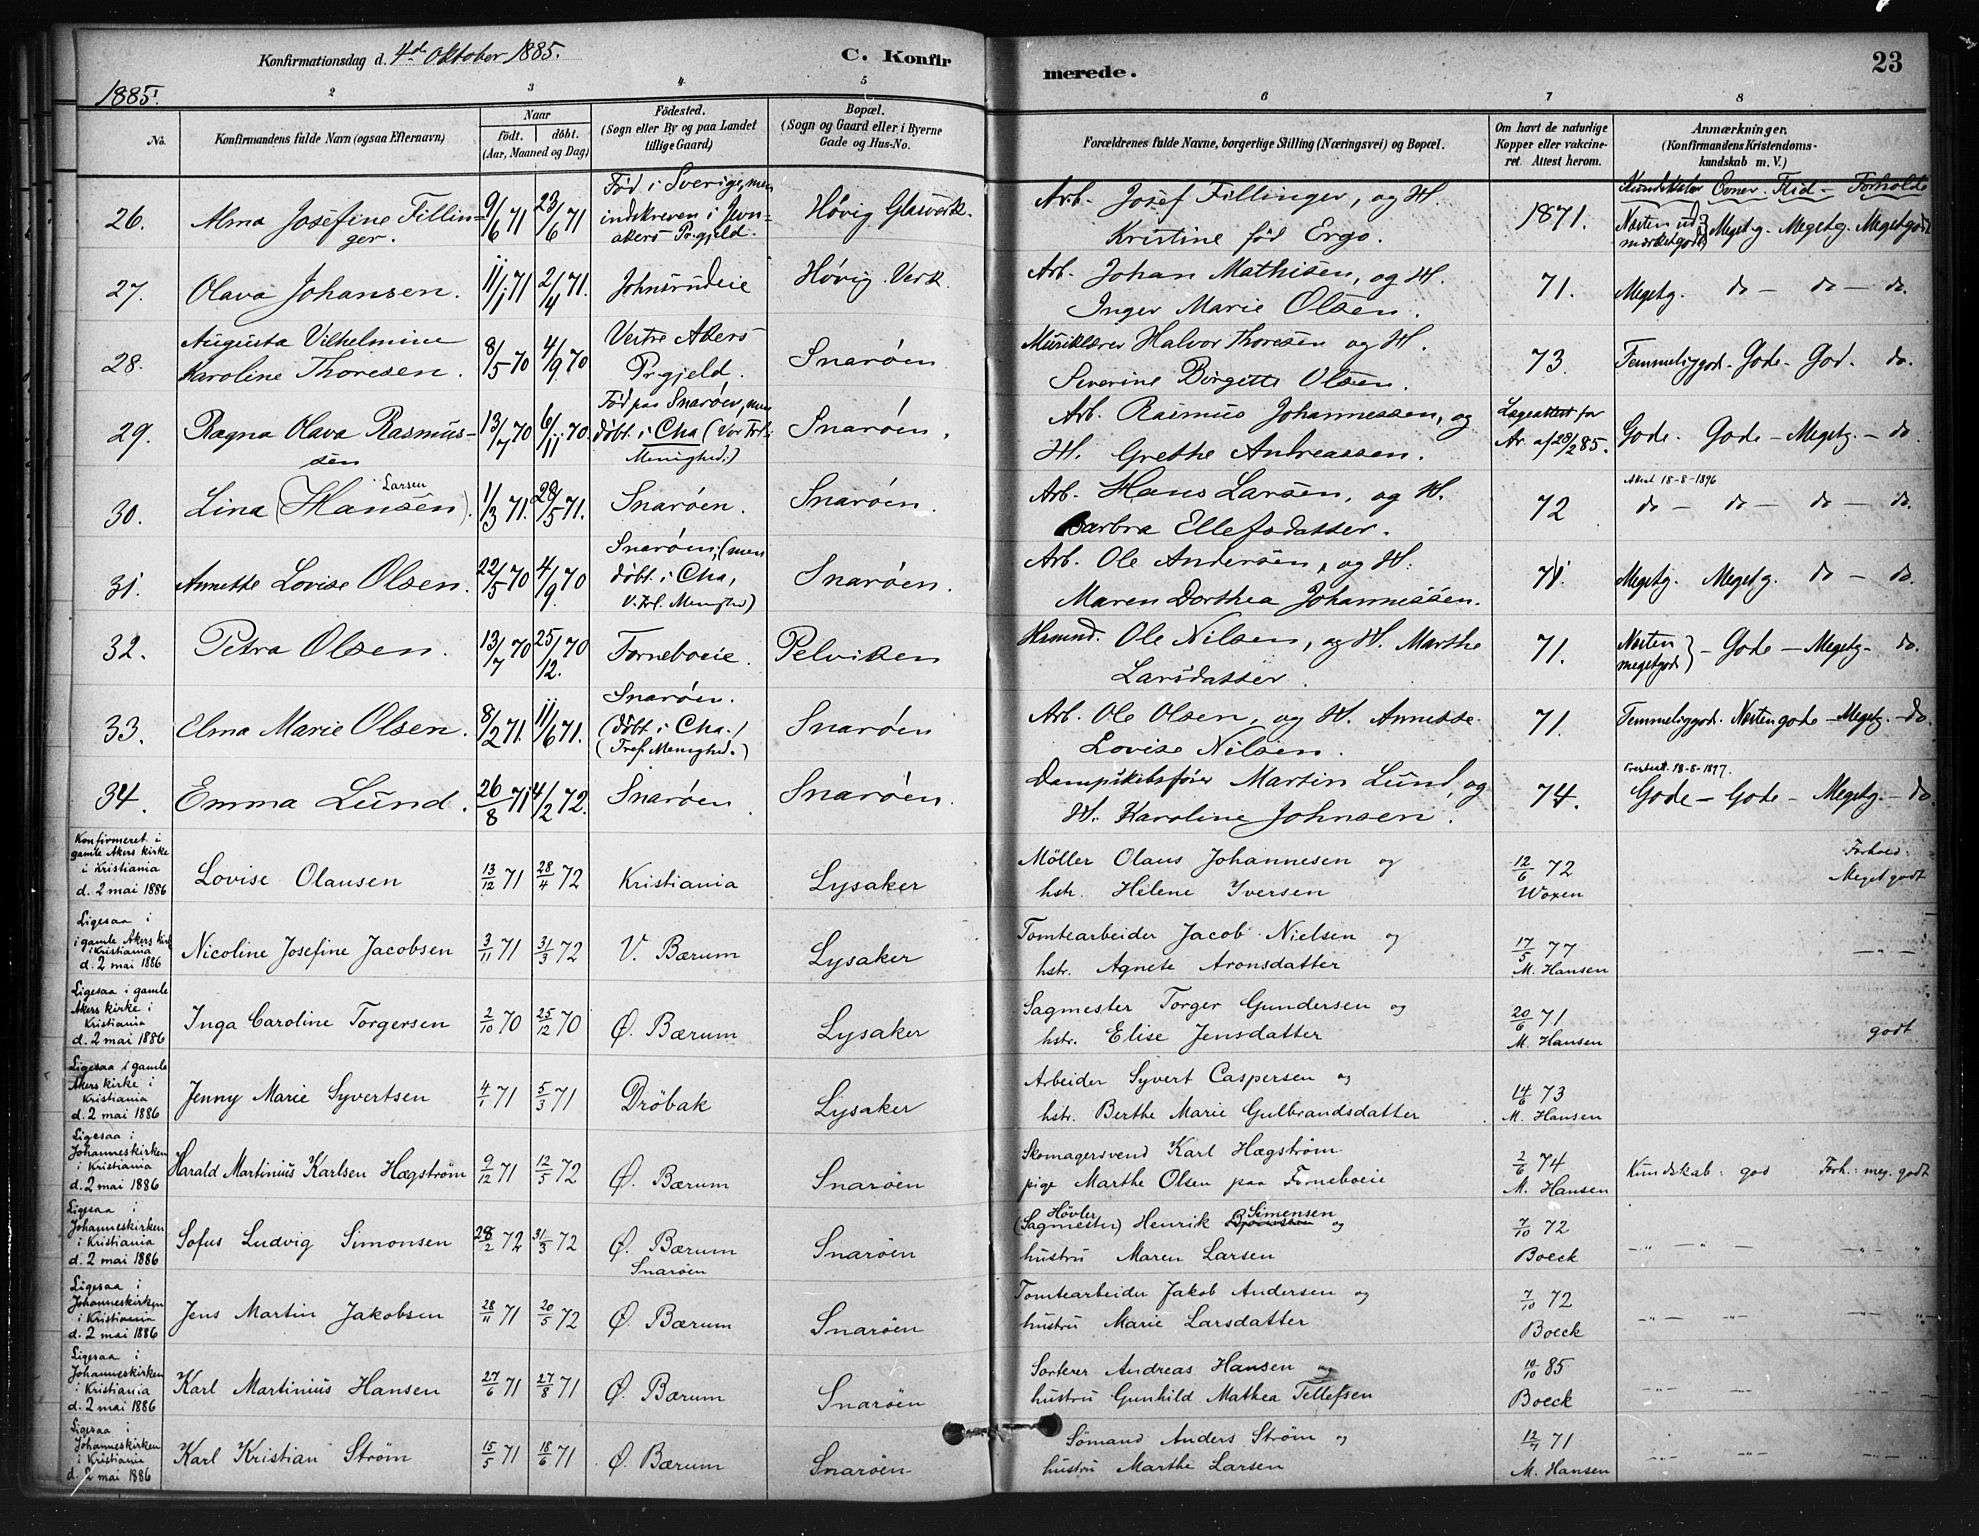 Konfirmationsdag d. 4de Oktober 1885.
C. Konfirmerede.
23
1885.
2 3 4. 5 6 7 8
No.
Konfirmandens fulde Navn (ogsaa Efternavn)
Naar
födt. döbt.
(Aar, Maaned og Dag)
Födested.
(Sogn eller By og paa Landet
tillige Gaard)
Bopæl.
(Sogn og Gaard eller i Byerne
Gade og Hus-No.
Forældrenes fulde Navne, borgerlige Stilling (Næringsvei) og Bopæl.
Om havt de naturlige
Kopper eller vakcine-
ret. Attest herom.
Anmærkninger.
(Konfirmandens Kristendoms-
kundskab m. V.)
Kundskaber Evner Flid Forholde
26. Alma Josefine Fillin-
ger. 9/6 71 23/6 71
Fød i Sverige, men
indskreven i Jevn-
akers Prgjeld.
Høvig Glasverk.
Arb. Josef Fillinger, og H.
Kristine fød Ergo.
1871. Næsten ud-
mærketgodt Megetg. Megetg. Megetgodt
27. Olava Johansen. 11/1 71 2/4 71. Johnsrudeie Høvig Verk.
Arb. Johan Mathisen, og H.
Inger Marie Olsen. 71. Megetg. do - do - do.
28. Augusta Vilhelmine
Karoline Thoresen. 8/5 70 4/9 70 Vestre Akers
Prgjeld. Snarøen
Musiklærer Halvor Thoresen og H.
Severine Birgitte Olsen. 73. Temmeliggod. Gode. God. do.
29. Ragna Olava Rasmus-
sen 13/7 70 6/11 70.
Fød paa Snarøen, men
døbt i Cha (Vor Frl.
Menighed.)
Snarøen.
Arb. Rasmus Johannessen, og
H. Grethe Andreassen.
Lægeattest for
Ar. af 28/2 85. Gode. Gode - Megetg. - do
30. Lina (Hansen). Larsen 1/3 71. 28/5 71. Snarøen. Snarøen.
Arb. Hans Larsen, og H.
Barbra Ellefsdatter. 72 Attest 18-8-1896
do - do - do - do.
31. Annette Lovise Olsen. 22/5 70 4/9 70
Snarøen, (men
døbt i Cha,
V. Frl. Menighed)
Snarøen.
Arb. Ole Andersen, og H.
Maren Dorthea Johannessen. 71. Megetg. Megetg. do - do.
32. Petra Olsen. 13/7 70 25/12 70. Forneboeie. Pelviken
Hrmnd. Ole Nilsen, og H. Marthe
Larsdatter. 71. Næsten
megetgod - Gode - Megetg - do.
33. Elma Marie Olsen. 8/2 71. 11/6 71.
Snarøen.
(døbt i Cha.)
(Tref. Menighed.)
Snarøen
Arb. Ole Olsen, og H. Annette
Lovise Nilsen. 71. Temmeliggod. Næsten gode - Megetg. - do.
34. Emma Lund. 26/8 71 4/2 72. Snarøen Snarøen.
Dampskibsfører Martin Lund, og
H. Karoline Johnsen. 74. 18-8-1897.
Gode - Gode - Megetg. - do.
Konfirmeret i
gamle Akers kirke
i Kristiania
d. 2 mai 1886
Lovise Olausen 13/12 71 28/4 72 Kristiania Lysaker
Möller Olaus Johannesen og
hstr. Helene Iversen
12/6 72
Woxen
Forhold:
Meget godt
Ligesaa i
i gamle Akers kirke
i Kristiania
d. 2 mai 1886
Nicoline Josefine Jacobsen 3/11 71 31/3 72 V. Bærum Lysaker
Tomtearbeider Jacob Nielsen og
hstr. Agnete Aronsdatter
17/5 77
M. Hansen
-"- -
Ligesaa i gamle
Akers kirke i
Kristiania
d. 2 mai 1886
Inga Caroline Torgersen 2/10 70 25/12 70 Ø. Bærum Lysaker
Sagmester Torger Gundersen og
hstr. Elise Jensdatter
20/6 71
M. Hansen
godt
Ligesaa i gamle
Akers kirke i
Kristiania
d. 2 mai 1886
Jenny Marie Syvertsen 4/1 71 5/3 71 Dröbak Lysaker
Arbeider Syvert Caspersen og
hstr. Berthe Marie Gulbrandsdatter
14/6 73
M. Hansen
Ligesaa i
Johanneskirken
i Kristiania
d. 2 mai 1886
Harald Martinius Karlsen Hægström 9/12 71 12/5 72 Ø. Bærum Snarøen
Skomagersvend Karl Hægström
pige Marthe Olsen paa Forneboeie
2/6 74
M. Hansen
Kundskab: god Forh.: meg. godt
Ligesaa i
Johanneskirken
i Kristiania
d. 2 mai 1886
Sofus Ludvig Simonsen 28/2 72 31/3 72 Ø. Bærum
Snarøen Snarøen
Høvler Simensen
(Sagmester) Henrik og
hustru Maren Larsen
7/10 72
Boeck
-"- -"- - -"- "
Ligesaa i
Johanneskirken
i Kristiania
d. 2 mai 1886
Jens Martin Jakobsen 28/11 71 20/5 72 Ø. Bærum Snarøen
Tomtearbeider Jakob Andersen og
hustru Marie Larsdatter
7/10 72
Boeck
-"- -"- -"- "
Ligesaa i
Johanneskirken
i Kristiania
d. 2 mai 1886
Karl Martinius Hansen 27/6 71 27/8 71 Ø. Bærum Snarøen
Sorterer Andreas Hansen og
hustru Gunhild Mathea Tellefsen
10/10 85
Boeck
-"- -"- -"- "
Ligesaa i
Johanneskirken
i Kristiania
d. 2 mai 1886
Karl Kristian Ström 15/5 71 18/6 71 Ø. Bærum Snarøen
Sömand Anders Ström og
hustru Marthe Larsen
12/11 71
M. Hansen
-"- -"- -"- "